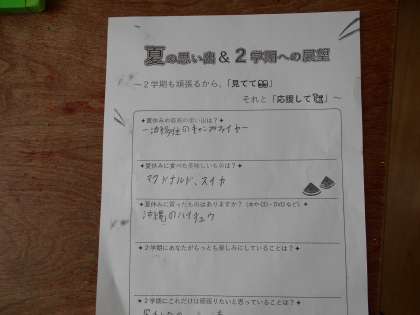 夏の思い出&2学期への展望
~2学期も頑張るから、「見てて」
それと「応援して」~
✦夏休みの最高の思い出は?✦
一泊3日のキャンプファイヤー
✦夏休みに食べた美味しいものは?✦
マクドナルド、スイカ
✦夏休みに買ったものはありますか?(本やCD・DVDなど)✦
沖縄のハイチュウ
✦2学期にあなたがもっとも楽しみにしていることは?✦
✦2学期にこれだけは頑張りたいと思っていることは?✦